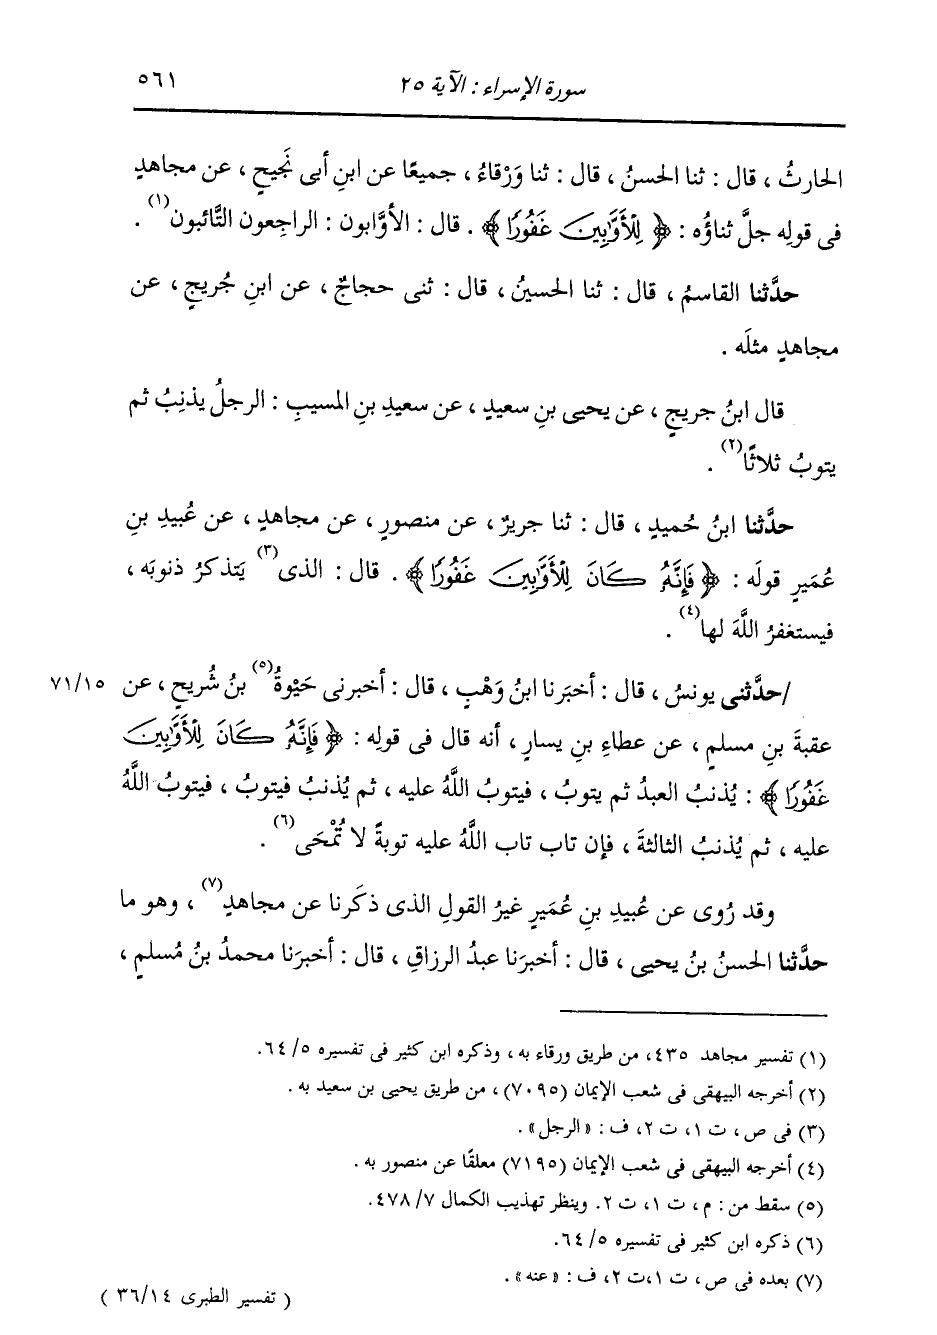 سورة الإسراء : الآية ٢٥
٥٦١
الحارثُ ، قال : ثنا الحسنُ ، قال : ثنا وَرْقاءُ ، جميعًا عن ابنِ أبى نَجيحٍ ، عن مجاهدٍ
فى قولِه جلَّ ثناؤُه : ﴿ لِلْأَوَّٰبِينَ غَفُورًا ﴾ . قال : الأوَّابون : الراجِعون التَّائبون(١) .
حدَّثنا القاسمُ ، قال : ثنا الحسينُ ، قال : ثنى حجاجٌ ، عن ابنِ جُريجٍ ، عن
مجاهدٍ مثلَه .
قال ابنُ جريجٍ ، عن يحيى بنِ سعيدٍ ، عن سعيدِ بنِ المسيبِ : الرجلُ يذنِبُ ثم
يتوبُ ثلاثًا(٢) .
حدَّثنا ابنُ حُميدٍ ، قال : ثنا جريرٌ ، عن منصورٍ ، عن مجاهدٍ ، عن عُبيدِ بنِ
عُمَيرٍ قولَه : ﴿ فَإِنَّهُۥ كَانَ لِلْأَوَّٰبِينَ غَفُورًا ﴾ . قال : الذى(٣) يَتذكرُ ذنوبَه ،
فيستغفرُ اللَّهَ لها(٤) .
/حدَّثنى يونسُ ، قال : أخبَرنا ابنُ وَهْبٍ ، قال : أخبرنى حَيْوةُ(٥) بنُ شُريحٍ ، عن ٧١/١٥
عقبةَ بنِ مسلمٍ ، عن عطاءِ بنِ يسارٍ ، أنه قال فى قولِه : ﴿ فَإِنَّهُۥ كَانَ لِلْأَوَّٰبِينَ
غَفُورًا ﴾ : يُذنبُ العبدُ ثم يتوبُ ، فيتوبُ اللَّهُ عليه ، ثم يُذنبُ فيتوبُ ، فيتوبُ اللَّهُ
عليه ، ثم يُذنبُ الثالثةَ ، فإن تاب تاب اللَّهُ عليه توبةً لا تُمْحَى(٦) .
وقد رُوى عن عُبيدِ بنِ عُمَيرٍ غيرُ القولِ الذى ذكَرنا عن مجاهدٍ(٧) ، وهو ما
حدَّثنا الحسنُ بنُ يحيى ، قال : أخبرَنا عبدُ الرزاقِ ، قال : أخبرَنا محمدُ بنُ مُسلمٍ ،
(١) تفسير مجاهد ٤٣٥، من طريق ورقاء به ، وذكره ابن كثير فى تفسيره ٥/ ٦٤.
(٢) أخرجه البيهقى فى شعب الإيمان (٧٠٩٥) ، من طريق يحيى بن سعيد به .
(٣) فى ص ، ت ١، ت ٢، ف : « الرجل» .
(٤) أخرجه البيهقى فى شعب الإيمان (٧١٩٥) معلقًا عن منصور به .
(٥) سقط من : م ، ت ١، ت ٢. وينظر تهذيب الكمال ٧/ ٤٧٨.
(٦) ذكره ابن كثير فى تفسيره ٥/ ٦٤.
(٧) بعده فى ص ، ت ١،ت ٢، ف : «عنه» .
( تفسير الطبرى ٣٦/١٤ )